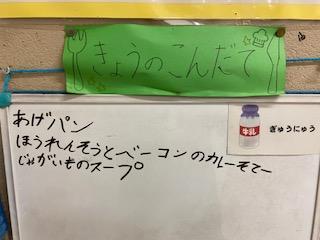 きょうのこんだて
あげパン
牛乳 ぎゅうにゅう
ほうれんそうとベーコンのカレーそてー
じゃがいものスープ